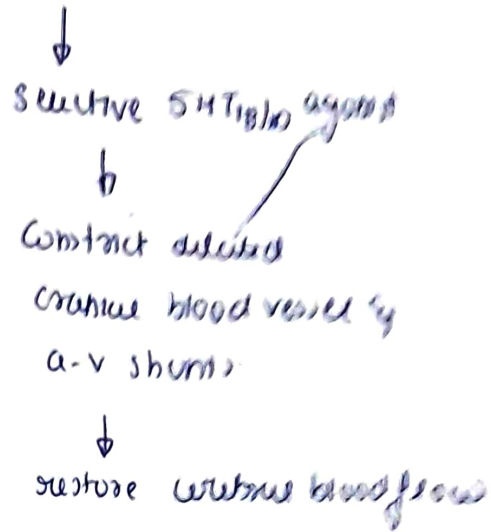 ↓
Selective 5HT1B/1D agonist
↓
Constrict dilated
cranial blood vessel &
a-v shunts
↓
restore cerebral blood flow